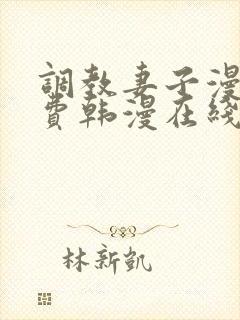 調教妻子漫
費韩漫在线
林新凯